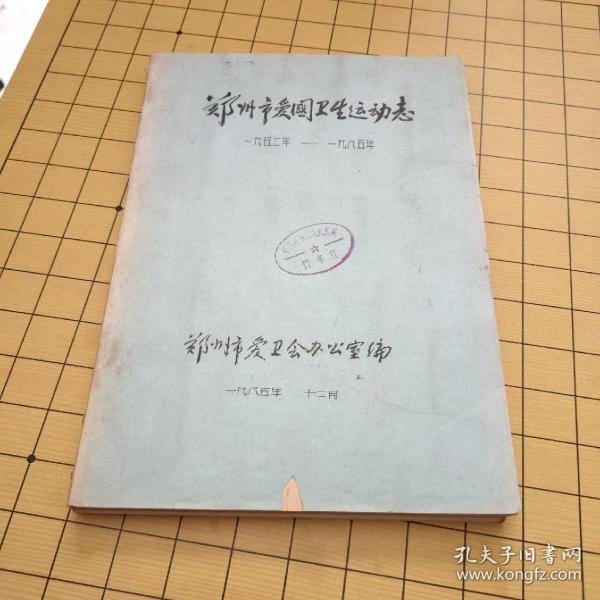 郑州市爱國卫生运动志
一九五二年 —— 一九八五年
图书室
郑州市爱卫会办公室编
一九八五年 十二月
孔夫子旧书网
www.kongfz.com